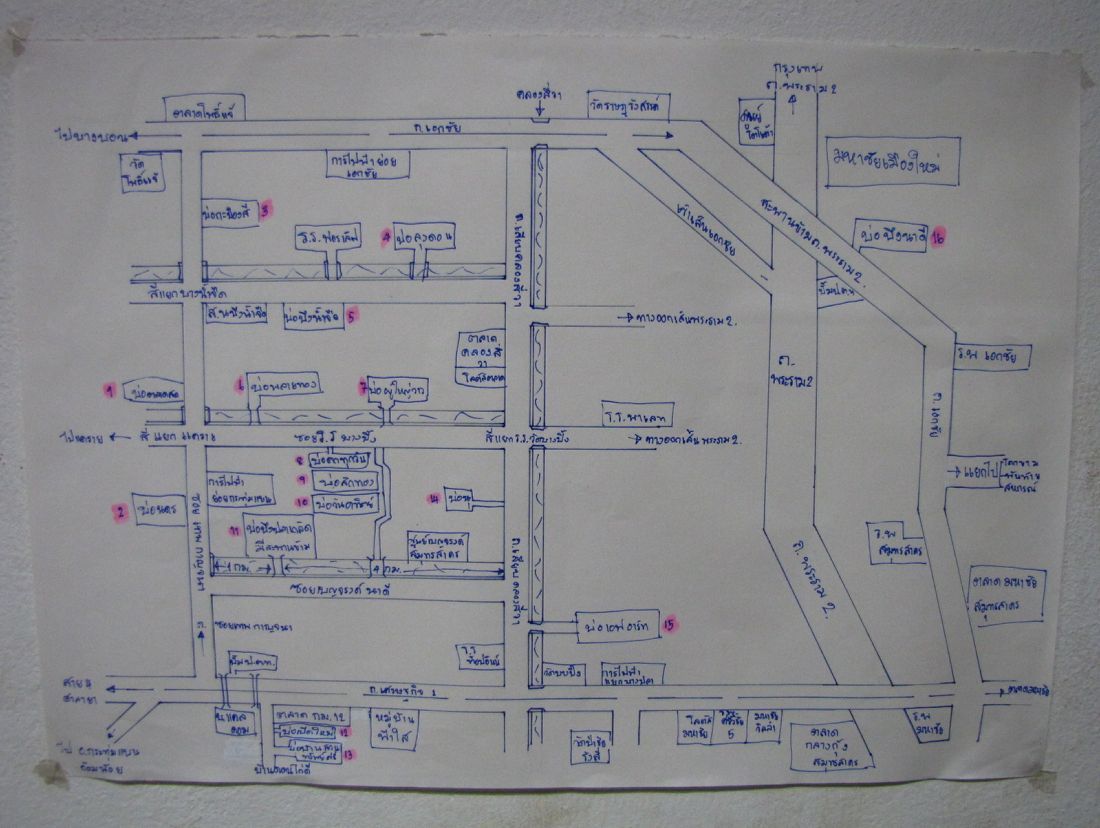 กรุงเทพ
ถ.พระราม 2
คลองสี่วา
ตลาดโพธิ์แจ้
วัดราษฎร์รังสรรค์
ไปบางบอน
ถ.เอกชัย
ศูนย์
โตโยต้า
วัด
โพธิ์แจ้
การไฟฟ้าย่อย
เอกชัย
มหาชัยเมืองใหม่
3
4
บ่อลุงดอน
ถ.เลียบคลองสี่วา
เข้าเส้นเอกชัย
สะพานข้ามถ.พระราม 2
บ่อบึงนาดี
16
สี่แยกบางน้ำจืด
5
ทางออกเส้นพระราม 2
ตลาด
คลองสี่
วา
โลตัสตลาด
ร.พ เอกชัย
1
6
บ่อพลายทอง
7
บ่อผู้ใหญ่วาว
ถ.
พระราม 2
ถ. เอกชัย
ร.ร. พาเลท
ไปแคราย
สี่แยกแคราย
ซอยร.ร บางปิ้ง
สี่แยกร.ร.วัดบางปิ้ง
ทางออกเส้นพระราม 2
8
บ่อตกทุกวัน
9
บ่อสักทอง
10
2
บ่อนคร
การไฟฟ้า
ย่อยกระทุ่มแบน
11
มีสะพานข้าม
14
แยกไป
โคกขาม
พันท้าย
สหกรณ์
ซอย เทพกาญจนา
1 กม.
4 กม.
ศูนย์เบญจรงค์
สมุทรสาคร
ถ.เลียบคลองสี่วา
ถ. พระราม 2
ร.พ
สมุทรสาคร
ตลาด มหาชัย
สมุทรสาคร
ซอยเบญจรงค์ นาดี
ถ.
ซอยเทพกาญจนา
บ่อเอฟอาร์ท
15
ปั๊มปตท.
วัดบางปิ้ง
การไฟฟ้า
ถ.เศรษฐกิจ 1
สาย 4
ศาลายา
ไป อ.กระทุ่มแบน
อ้อมน้อย
ตลาด กม.12
บ่อเปิดใหม่
12
13
หมู่บ้าน
ฟ้าใส
โลตัส
มหาชัย
5
มหาชัย
วิลล่า
ตลาด
กลางกุ้ง
สมุทรสาคร
ร.พ
มหาชัย